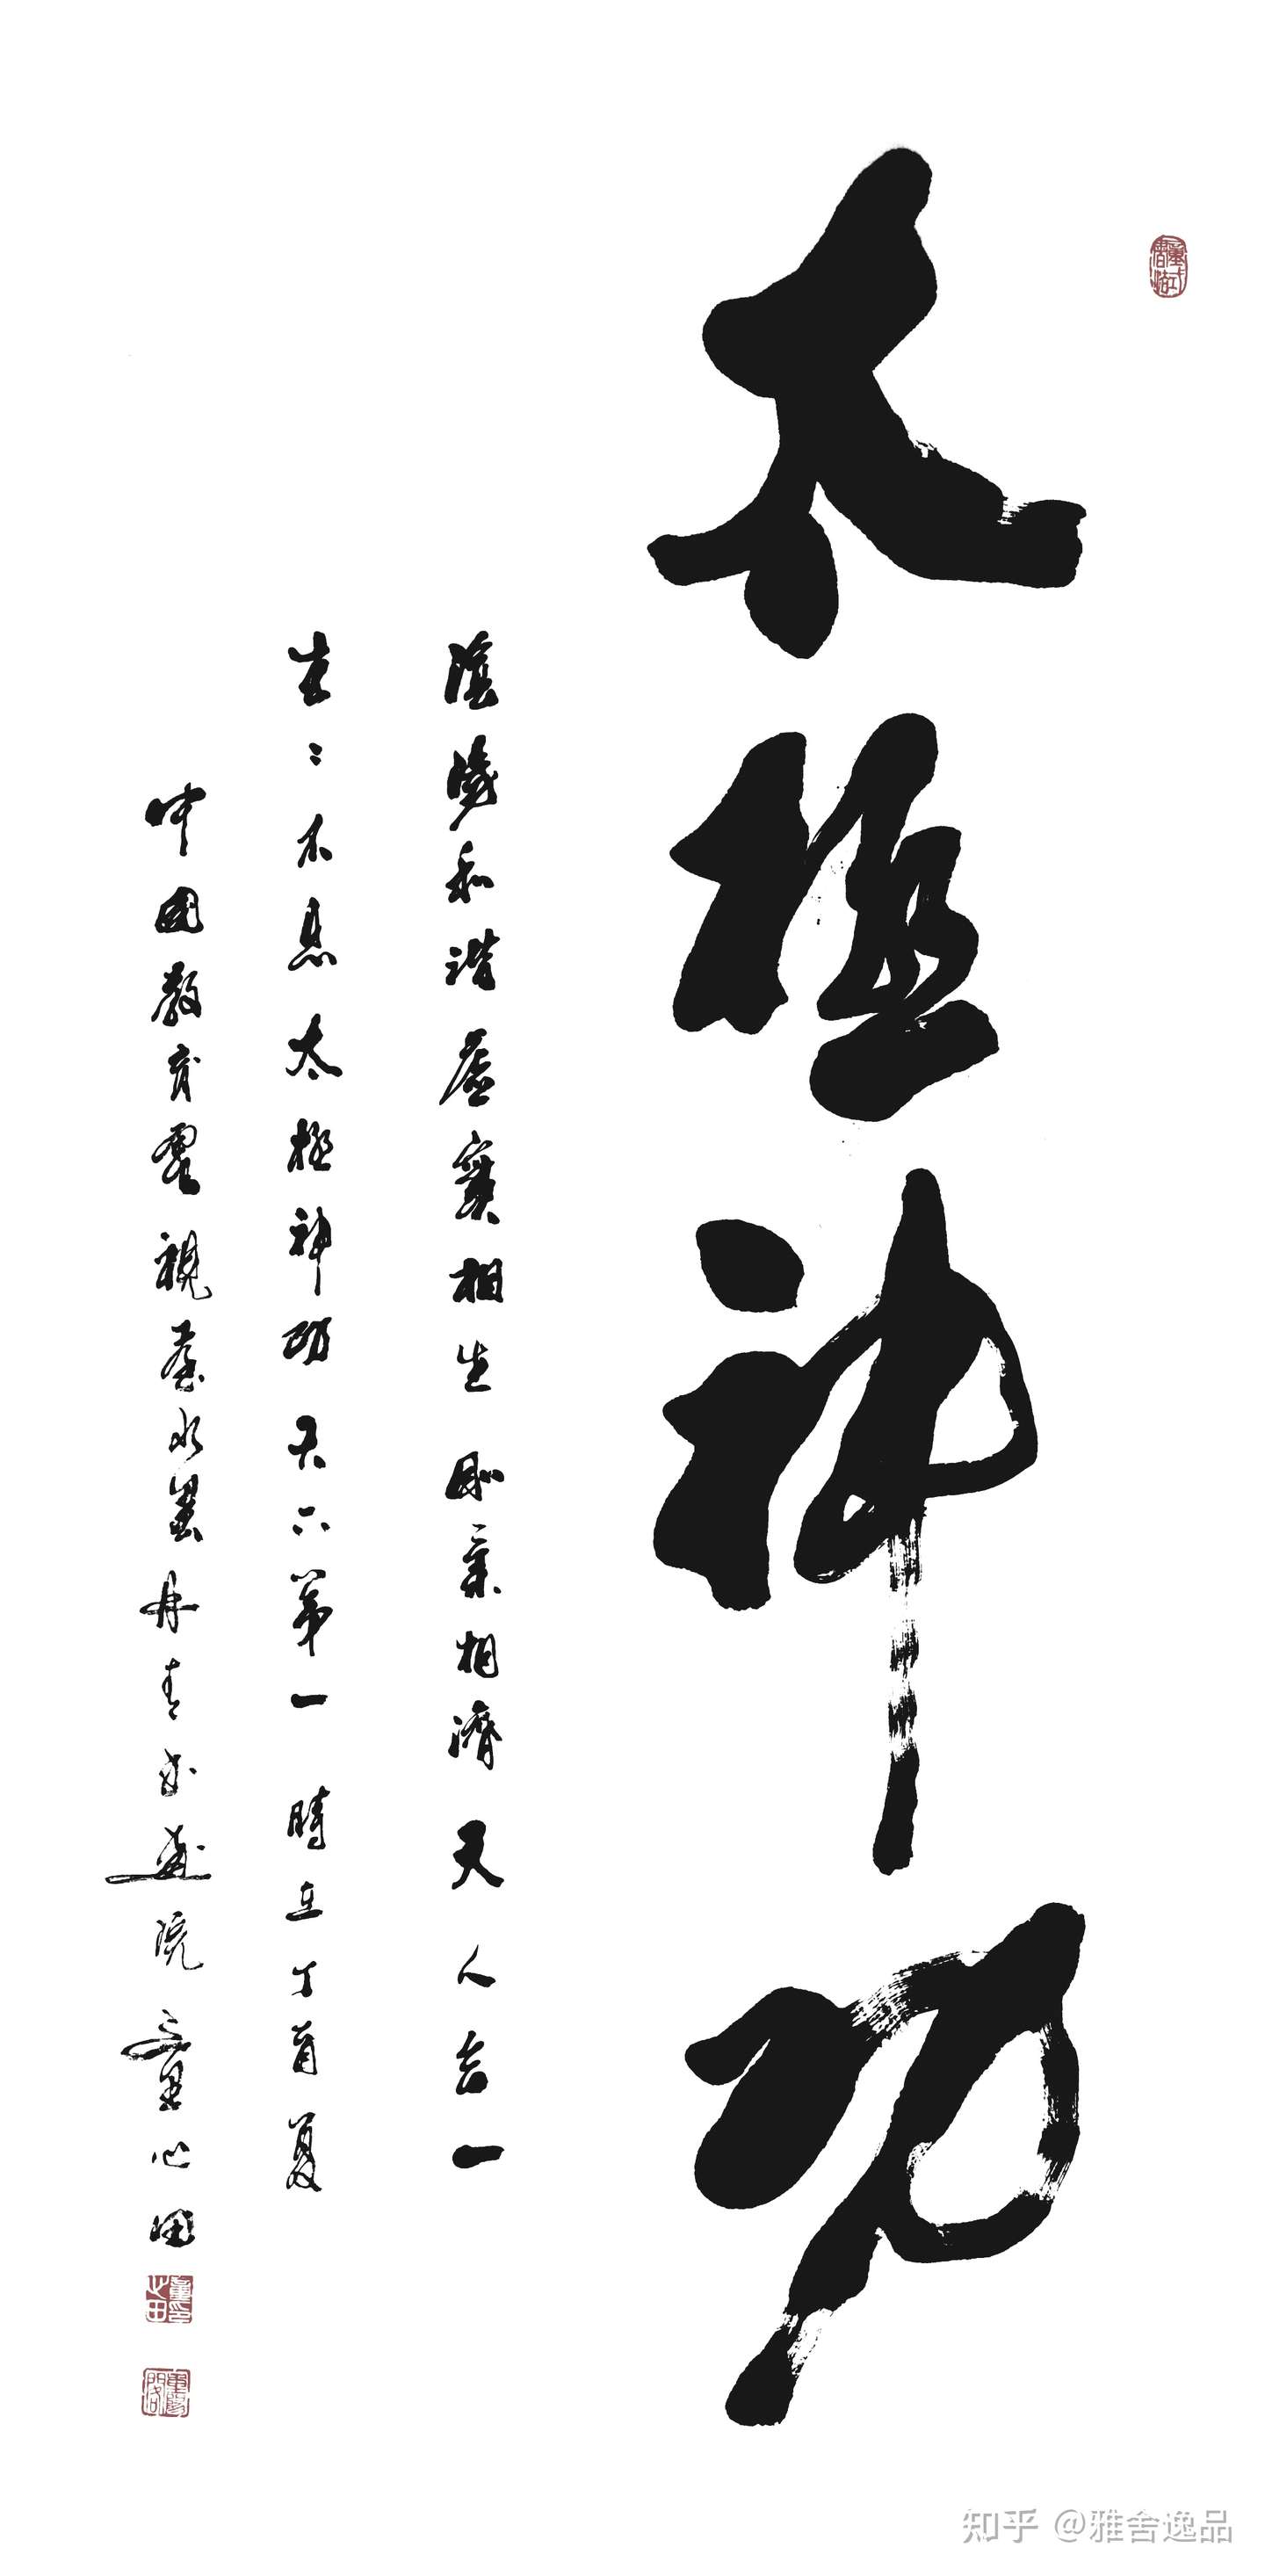 太極神功
陰陽和谐虚實相生剛柔相濟天人合一
生〻不息太極神功天下第一時在丁酉夏
中國教育電視臺水墨丹青書畫院童心田
知乎 @雅舍逸品